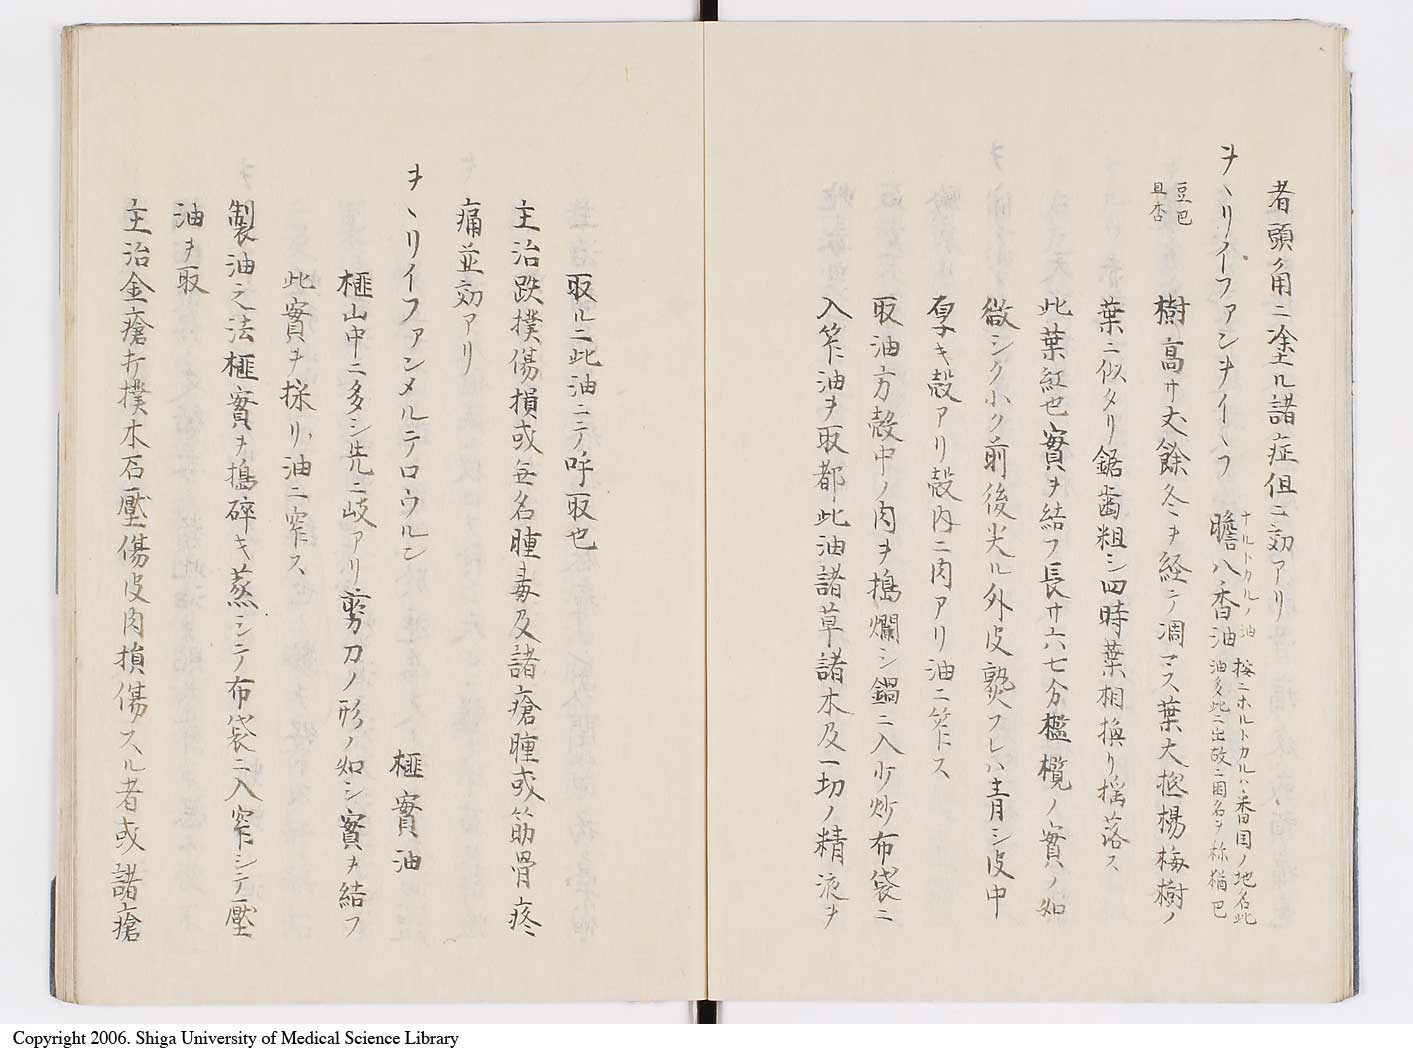 者頭ノ角ニ塗ル諸症但ニ効アリ
ヲヽリイーファンヲイヽフ 膽八香油 ナルトカルノ油 按ニホルトカルハ番国ノ地名此
油多此ニ出故ニ国名ヲ称猶巴
豆巴
且杏
樹高サ丈餘冬ヲ経テ凋マス葉大抵楊梅樹ノ
葉ニ似タリ鋸歯粗シ四時葉相換リ揺落ス
此葉紅也實ヲ結フ長サ六七分橄欖ノ實ノ如
微シク小ク前後尖ル外皮熟フレハ青シ皮中
厚キ殻アリ殻内ニ肉アリ油ニ笮ス
取油方殻中ノ肉ヲ搗爛シ鍋ニ入少炒布袋ニ
入笮油ヲ取都此油諸草諸木及一切ノ精液ヲ
取ルニ此油ニテ呼取也
主治跌撲傷損或無名腫毒及諸瘡腫或筋骨疼
痛並効アリ
ヲヽリイファンメルテロウルン 榧實油
榧山中ニ多シ先ニ岐アリ剪刀ノ形ノ如シ實ヲ結フ
此實ヲ採リ油ニ窄ス
製油之法榧實ヲ搗碎キ蒸シテ布袋ニ入窄シテ壓
油ヲ取
主治金瘡打撲木石壓傷皮肉損傷スル者或諸瘡
Copyright 2006. Shiga University of Medical Science Library